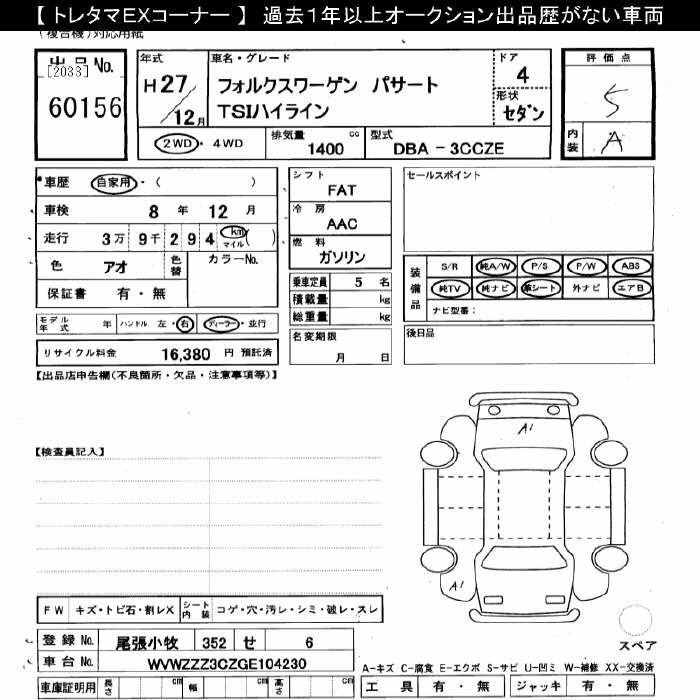 【 トレタマEXコーナー 】 過去1年以上オークション出品歴がない車両
(複合機)対応用紙
出品No.
[2033]
60156
年式
H 27/12月
車名・グレード
フォルクスワーゲン パサート
TSIハイライン
ドア
4
形状
セダン
評価点
5
内装
A
2WD・4WD
排気量 1400 cc
型式 DBA - 3CCZE
車歴 自家用・( )
車検 8 年 12 月
走行 3万 9千 2 9 4 km マイル ( )
色 アオ 色替 カラーNo.
保証書 有・無
モデル年式 年 ハンドル 左・右 ディーラー・並行
リサイクル料金 16,380 円 預託済
シフト
FAT
冷房
AAC
燃料
ガソリン
乗車定員 5 名
積載量 kg
総重量 kg
名変期限
月 日
セールスポイント
装備品
S/R 純A/W P/S P/W ABS
純TV 純ナビ 革シート 外ナビ エアB
ナビ型番：
後日品
【出品店申告欄(不良箇所・欠品・注意事項等)】
【検査員記入】
A1
A1
FW キズ・トビ石・割レX シート内装 コゲ・穴・汚レ・シミ・破レ・スレ
登録No. 尾張小牧 352 せ 6
車台No. WVWZZZ3CZGE104230
車庫証明用 長さ cm 幅 cm 高さ cm
スペア
A-キズ C-腐食 E-エクボ S-サビ U-凹ミ W-補修 XX-交換済
工具 有・無 ジャッキ 有・無